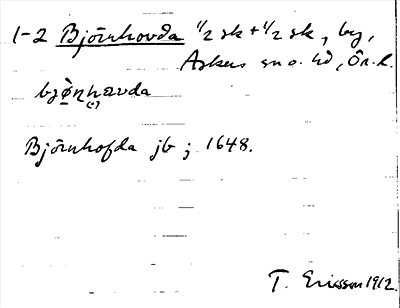 1-2 Björnhovda 1/2 sk + 1/2 sk, by,
Askers sn o. hd, Ör. l.
bjö̀ṇhavda
Björnhofda jb ; 1648.
T. Ericsson 1912.